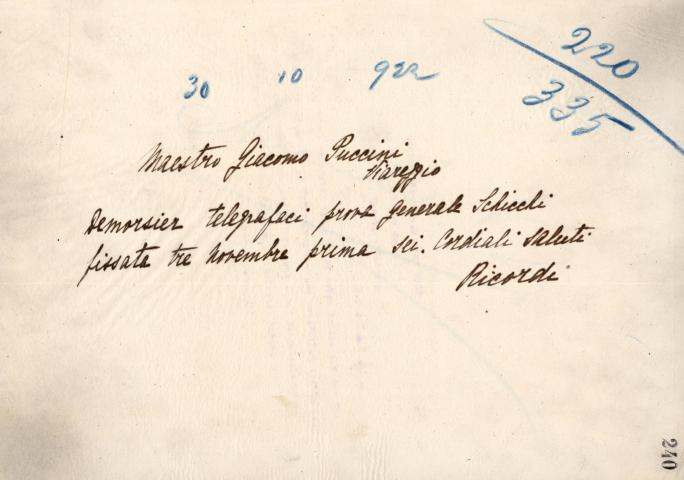 220
335
30 10 922
Maestro Giacomo Puccini
Viareggio
Demorsier telegrafaci prova generale Schicchi
fissata tre novembre prima sei. Cordiali saluti
Ricordi
240